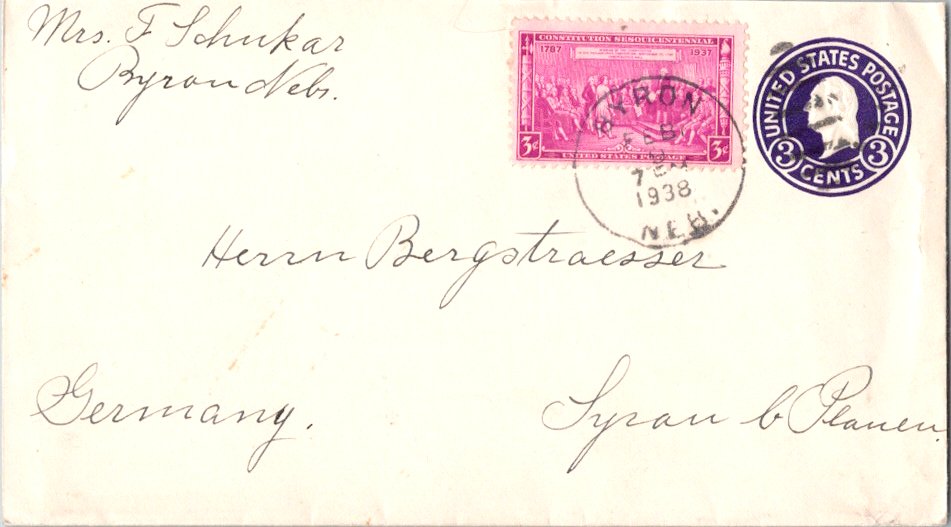 Mrs. F Schukar
Byron Nebr.
CONSTITUTION SESQUICENTENNIAL
1787 1937
3¢ 3¢
UNITED STATES POSTAGE
BYRON
FEB.
1938
NEB.
UNITED STATES POSTAGE
3 CENTS 3
Herrn Bergstraesser
Syrau b Plauen
Germany.